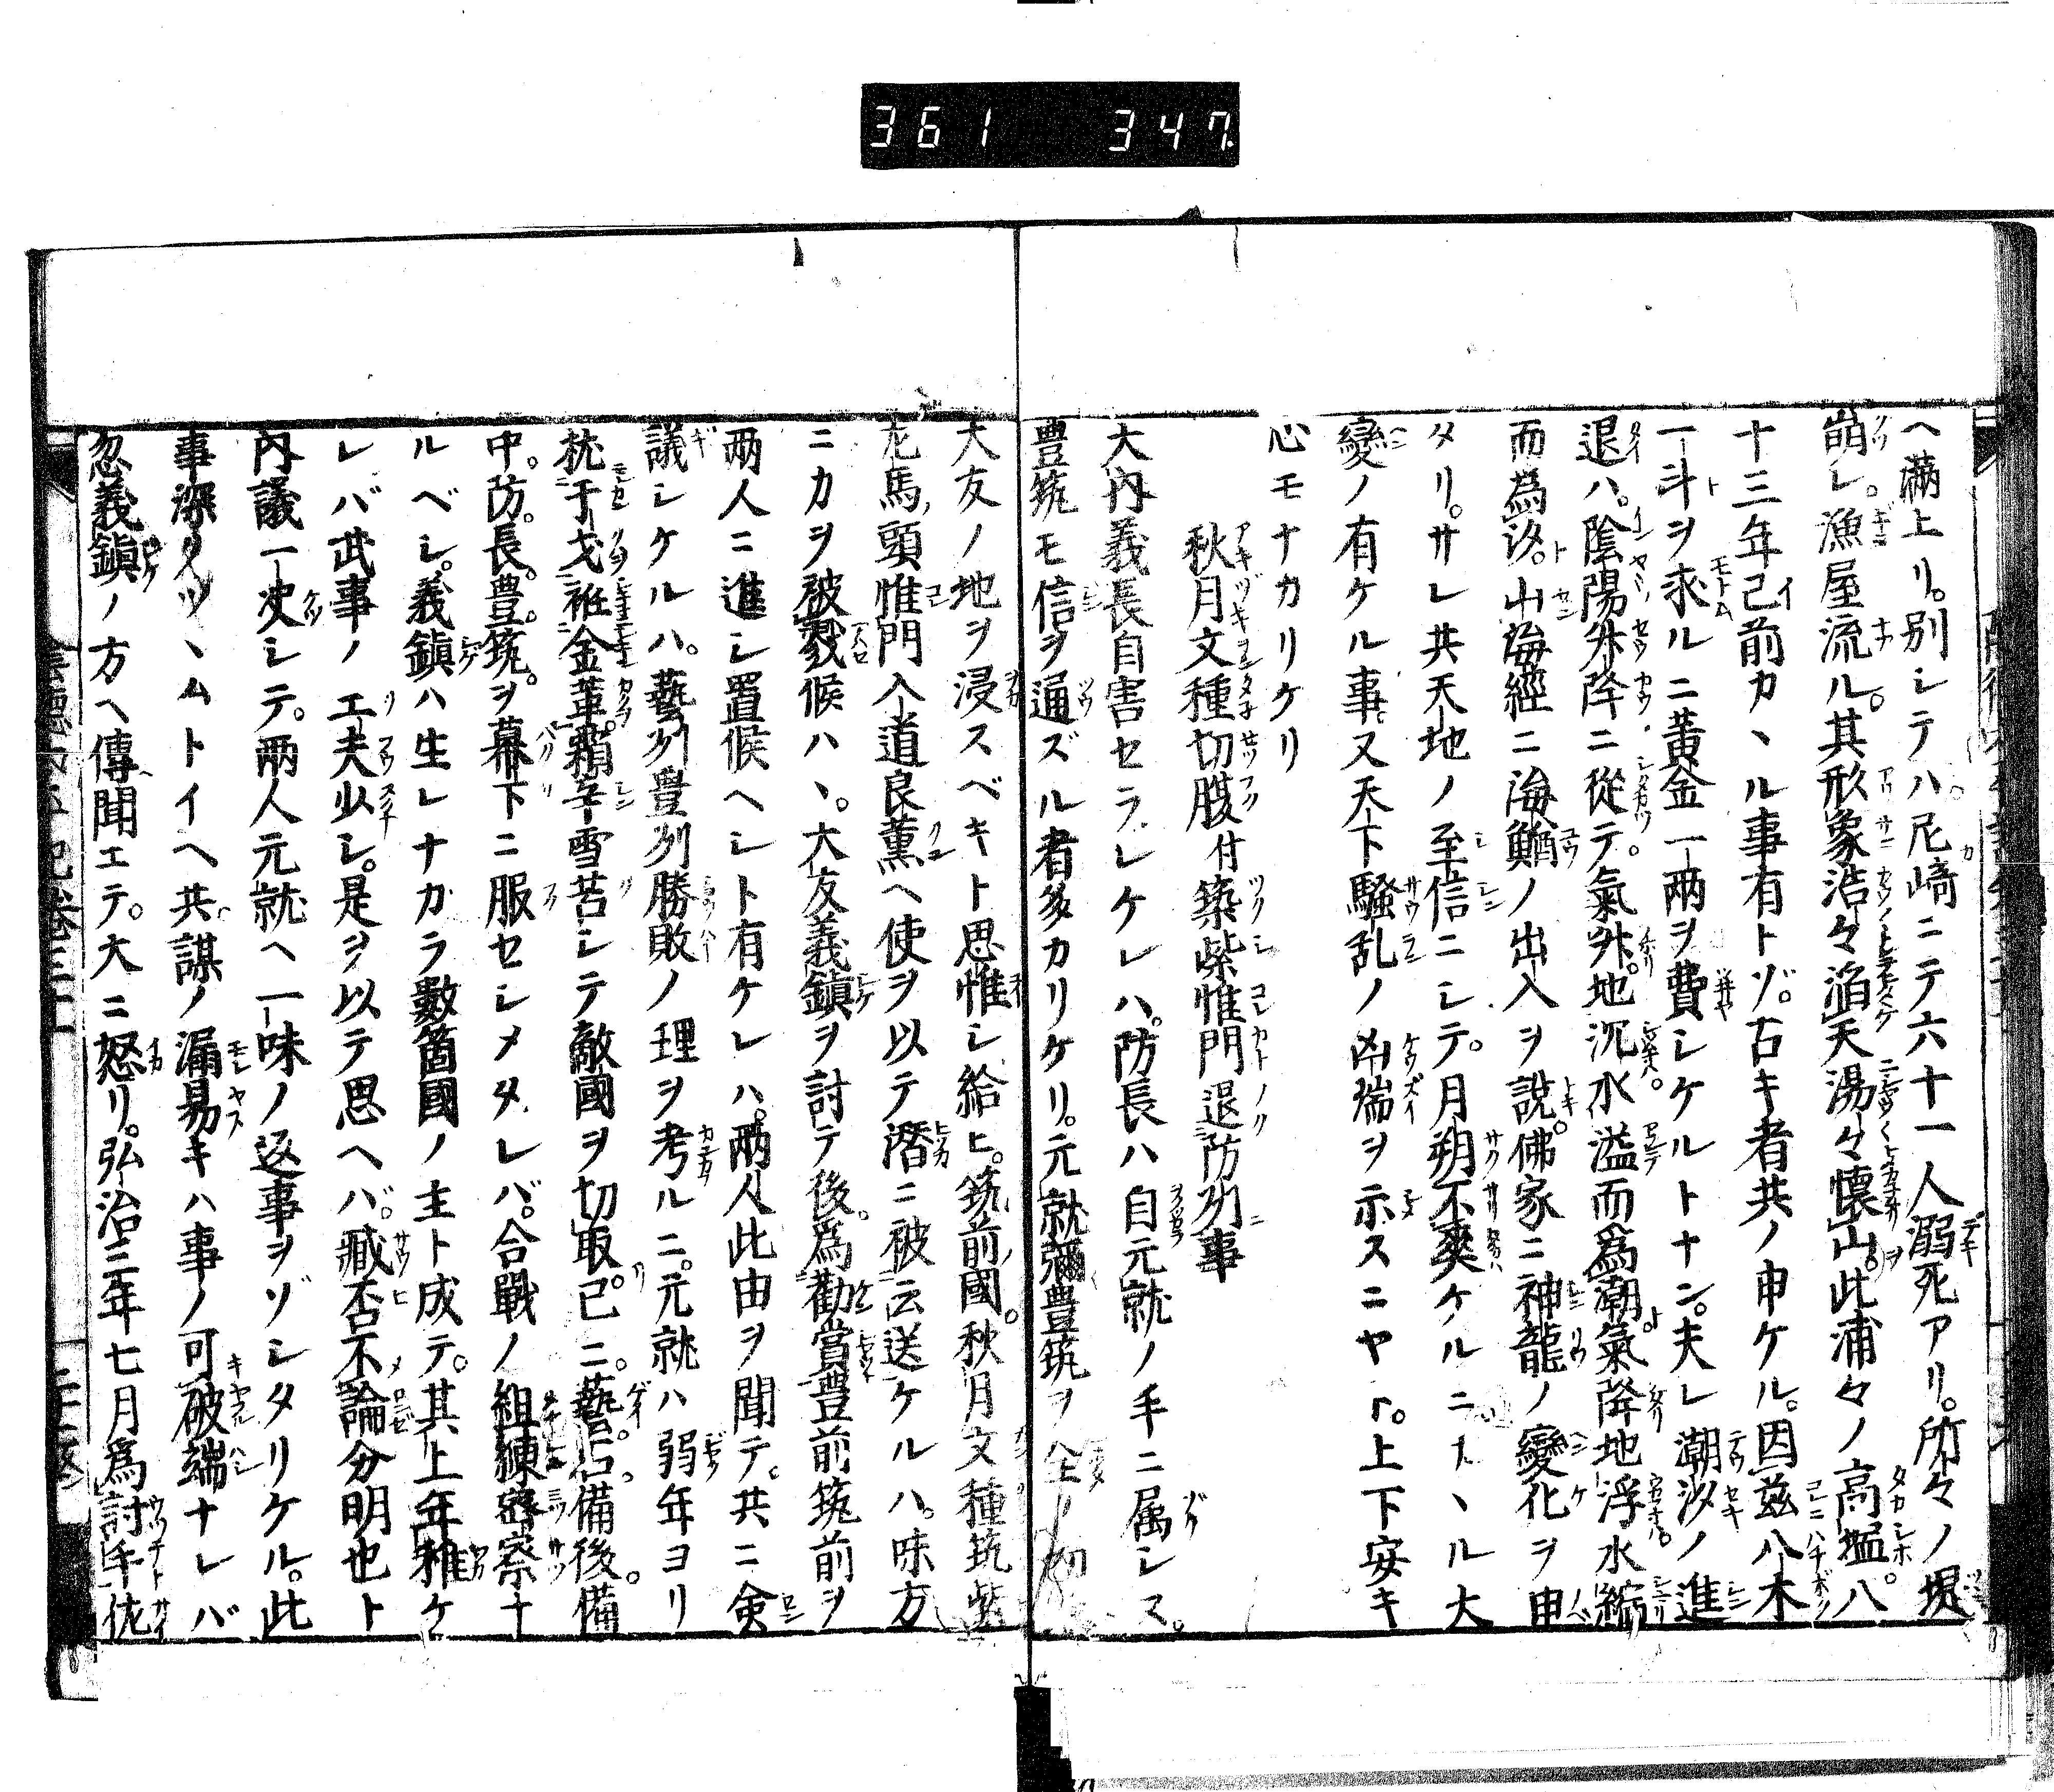 361 347
ヘ満上リ。別シテハ尼﨑ニテ六十一人溺死アリ。所々ノ堤
崩レ。漁屋流ル。其形象浩々滔天湯々懐山。此浦々ノ高塩。八
十三年已前カヽル事有トゾ。古キ者共ノ申ケル。因茲八木
一斗ヲ求ルニ黄金一両ヲ費シケルトナン。夫レ潮汐ノ進
退ハ。陰陽升降ニ從テ。氣升。地沉。水溢而爲潮。氣降地浮水縮
而爲汐。山海經ニ海鰌ノ出入ヲ説。佛家ニ神龍ノ變化ヲ申
タリ。サレ共天地ノ至信ニシテ。月朔不爽ケルニカヽル大
變ノ有ケル事。又天下騒乱ノ凶端ヲ示スニヤト。上下安キ
心モナカリケリ
秋月文種切腹付築紫惟門退防刕事
大内義長自害セラレケレハ。防長ハ自元就ノ手ニ属シヌ。
豊筑モ信ヲ通ズル者多カリケリ。元就彌豊筑ヲ
大友ノ地ヲ浸スベキト思惟シ給ヒ。筑前國。秋月文種筑紫
左馬頭惟門入道良薫ヘ使ヲ以テ潜ニ被云送ケルハ。味方
ニカヲ被戮候ハヽ。大友義鎮ヲ討テ後。爲勸賞豊前筑前ヲ
两人ニ進シ置候ヘシト有ケレハ。两人此由ヲ聞テ。共ニ僉
議シケルハ。藝刕豊刕勝敗ノ理ヲ考ルニ。元就ハ弱年ヨリ
枕于戈衽金革。霜辛雪苦シテ敵國ヲ切取。已ニ。藝。石。備後。備
中。防。長。豊。筑。ヲ幕下ニ服セシメタレバ。合戰ノ組練密察ナ
ルベシ。義鎮ハ生レナカラ數箇國ノ主ト成テ。其上年雅ケ
レバ武事ノ工夫少シ。是ヲ以テ思ヘバ。臧否不論分明也ト
内議一决シテ。兩人元就ヘ一味ノ返事ヲゾシタリケル。此
事深クツヽムトイヘ共。謀ノ漏易キハ事ノ可破端ナレバ
忽義鎮ノ方ヘ傳聞エテ。大ニ怒リ。弘治三年七月爲討手佐